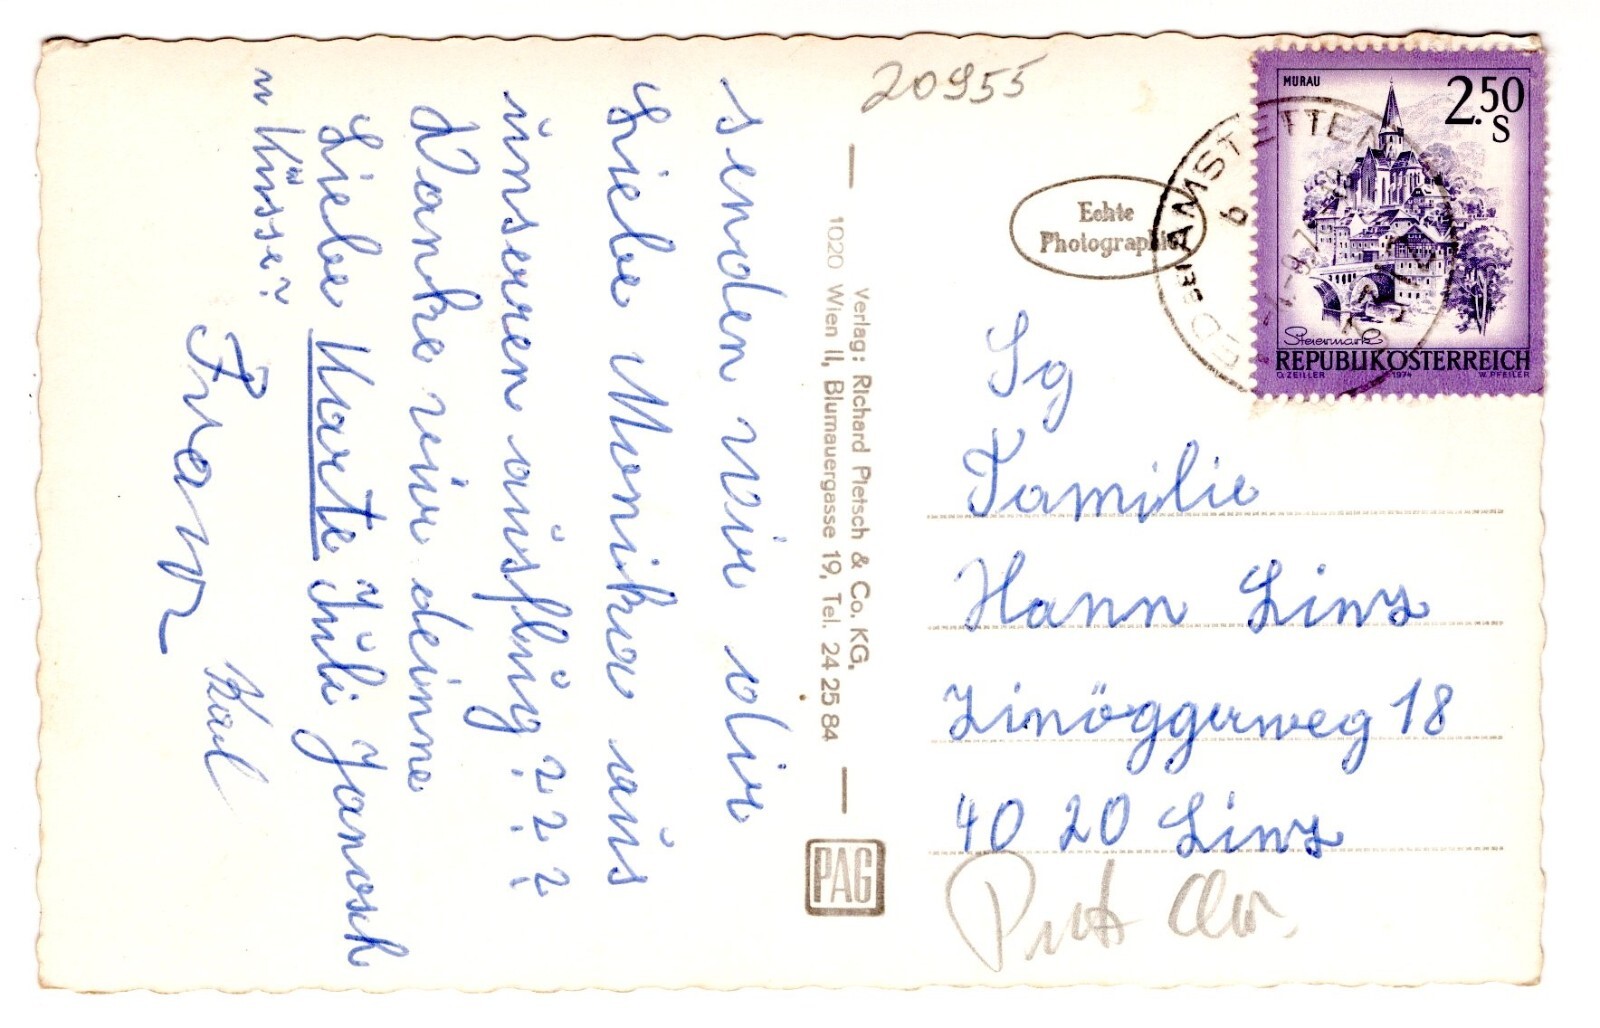 20955
MURAU
2.50
S
Steiermark
REPUBLIK ÖSTERREICH
O. ZEILLER 1974 W. PFEILER
AMSTETTEN
BEI
b
Echte
Photographie
senden wir dir
Liebe Monika aus
unseren ausflug ? ? ?
Danke wir deine
Liebe Karte Juli Janosch
n Küsse?
Franz
Karl
Verlag: Richard Pietsch & Co. KG,
1020 Wien II, Blumauergasse 19, Tel. 24 25 84
PAG
Sg
Familie
Hann Linz
Zinöggerweg 18
40 20 Linz